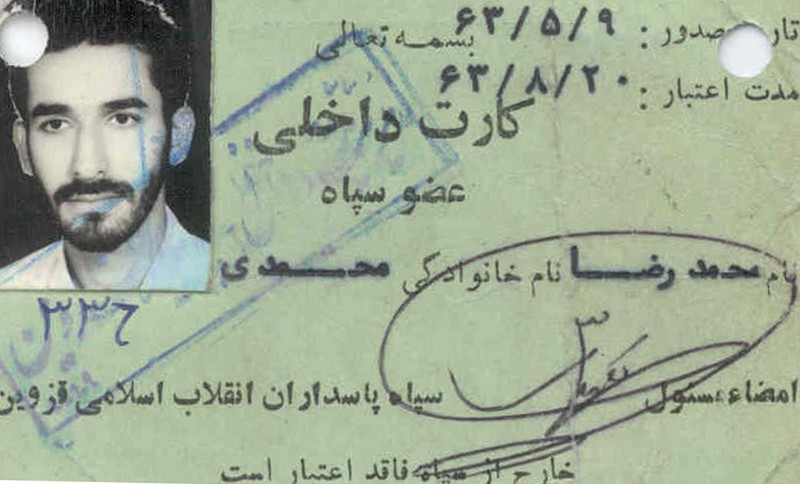 بسمه تعالی
تاریخ صدور : ۶۳/۵/۹
مدت اعتبار : ۶۳/۸/۲۰
کارت داخلی
عضو سپاه
نام محمد رضا نام خانوادگی محمدی
امضاء مسئول سپاه پاسداران انقلاب اسلامی قزوین
خارج از سپاه فاقد اعتبار است